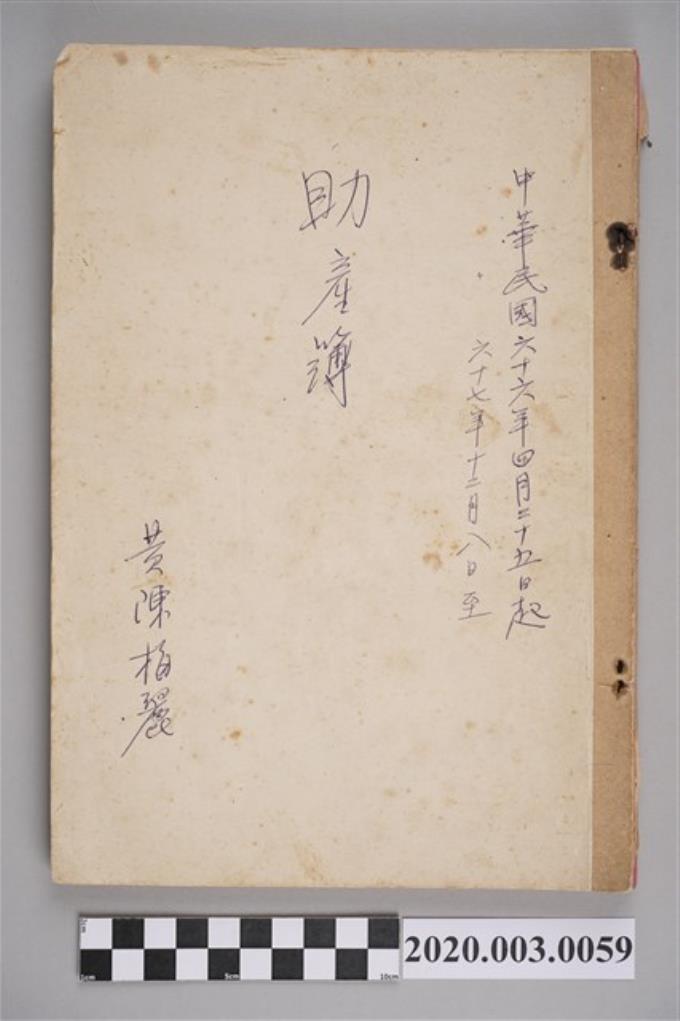 中華民國六十六年四月二十五日起
六十七年十二月八日至
助產簿
黃陳梅麗
1cm 5cm 10cm
2020.003.0059